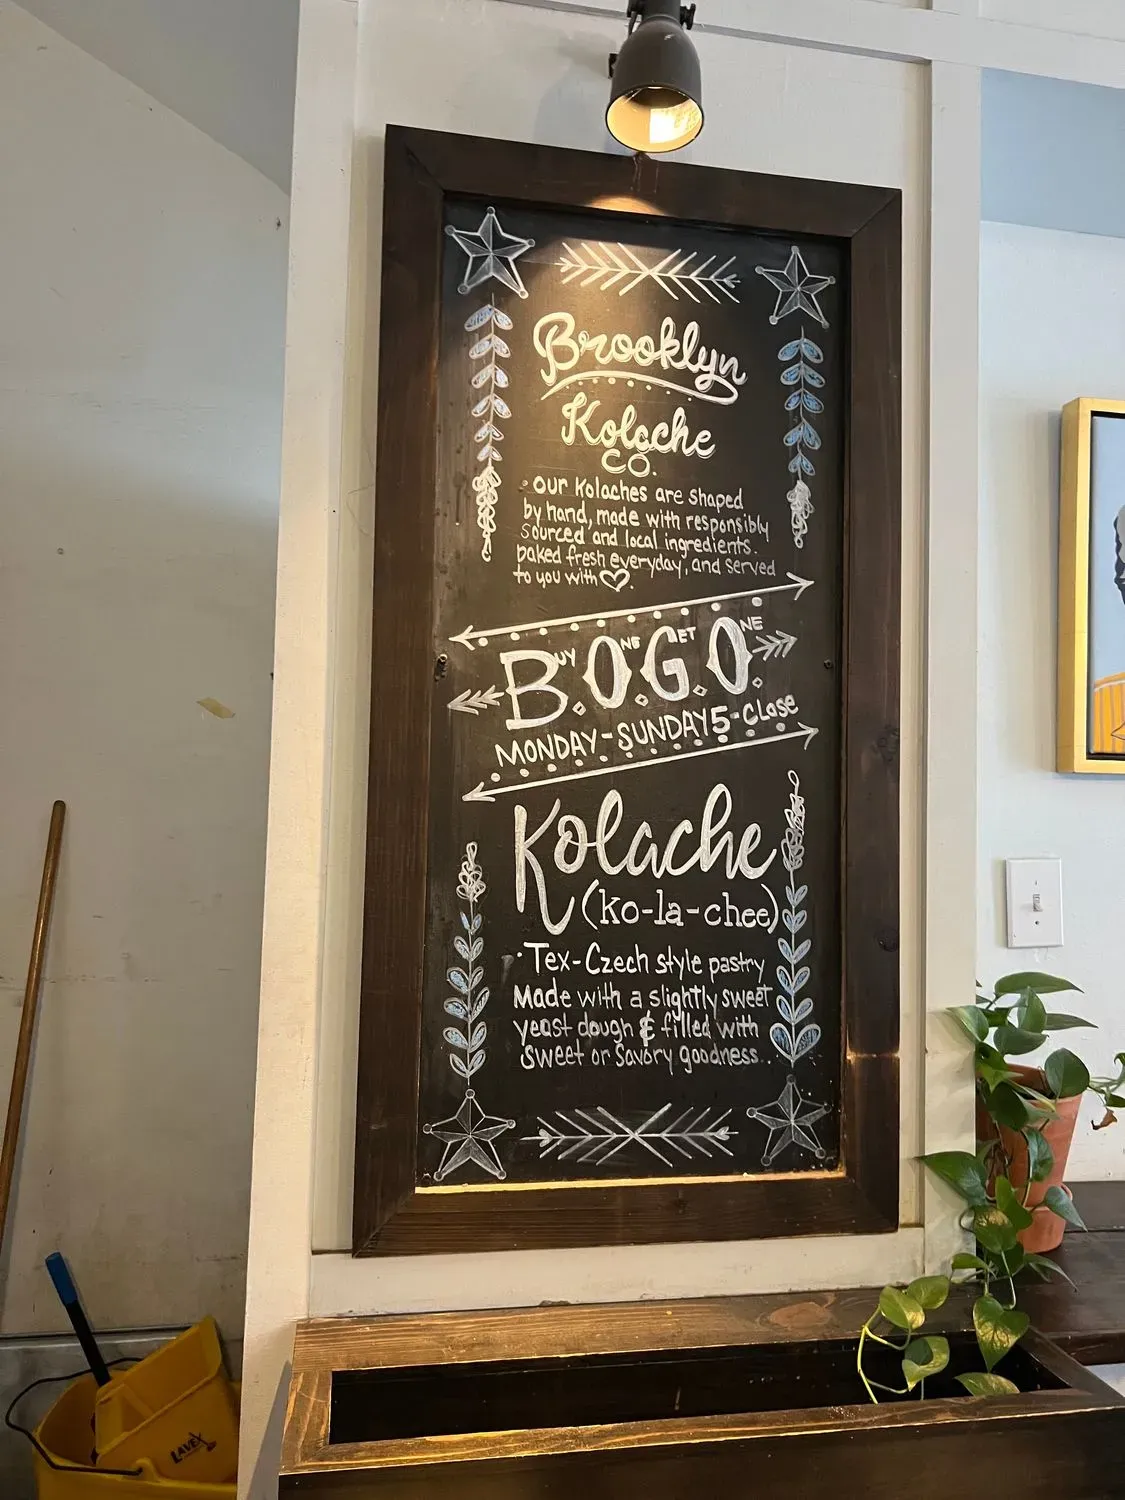 Brooklyn
Kolache
CO.
• OUR Kolaches are shaped
by hand, made with responsibly
sourced and local ingredients.
baked fresh everyday, and served
to you with ♡.
BUY.ONE.GET.ONE.
MONDAY-SUNDAY 5-CLose
Kolache
(ko-la-chee)
• Tex-Czech style pastry
Made with a slightly sweet
yeast dough & filled with
sweet or savory goodness..
LAVEX